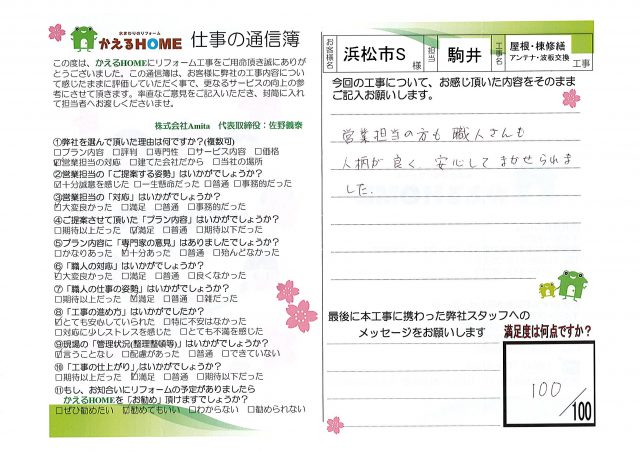 水まわりのリフォーム
かえるHOME 仕事の通信簿
この度は、かえるHOMEにリフォーム工事をご用命頂き誠にありが
とうございました。この通信簿は、お客様に弊社の工事内容につい
て感じたままに評価していただく事で、更なるサービスの向上の参
考にさせて頂きます。率直なご意見をご記入いただき、封筒に入れ
て担当者へお渡しくださいませ。
株式会社Amita 代表取締役：佐野義泰
①弊社を選んで頂いた理由は何ですか?(複数可)
□プラン内容 □評判 □専門性 □サービス内容 □価格
☑営業担当の対応 □建てた会社だから □当社の場所
②営業担当の「ご提案する姿勢」はいかがでしょうか?
☑十分誠意を感じた □一生懸命だった □普通 □事務的だった
③営業担当の「対応」はいかがでしょうか?
☑大変良かった □満足 □普通 □事務的だった
④ご提案させて頂いた「プラン内容」はいかがでしょうか?
□期待以上だった ☑満足 □普通 □期待以下だった
⑤プラン内容に「専門家の意見」はありましたでしょうか?
□かなりあった ☑十分あった □普通 □殆んどなかった
⑥「職人の対応」はいかがでしょうか?
☑大変良かった □満足 □普通 □良くなかった
⑦「職人の仕事の姿勢」はいかがでしょうか?
□期待以上だった ☑満足 □普通 □雑だった
⑧「工事の進め方」はいかがでしたか?
☑とても安心していられた □特に不安はなかった
□対応に少しストレスを感じた □とても不満を感じた
⑨現場の「管理状況(整理整頓等)」はいかがでしょうか?
☑言うことなし □配慮があった □できていない
⑩「工事の仕上がり」はいかがでしょうか?
□期待以上だった ☑満足 □普通 □期待以下だった
⑪もし、お知合いにリフォームの予定がありましたら
かえるHOMEを「お勧め」頂けますでしょうか?
□ぜひ勧めたい ☑勧めてもいい □わからない □勧められない
お客様名 浜松市S 様 担当 駒井 工事名 屋根・棟修繕
アンテナ・波板交換 工事
今回の工事について、お感じ頂いた内容をそのまま
ご記入お願いします。
営業担当の方も職人さんも
人柄が良く、安心してまかせられま
した.
最後に本工事に携わった弊社スタッフへの
メッセージをお願いします
満足度は何点ですか?
100
/100